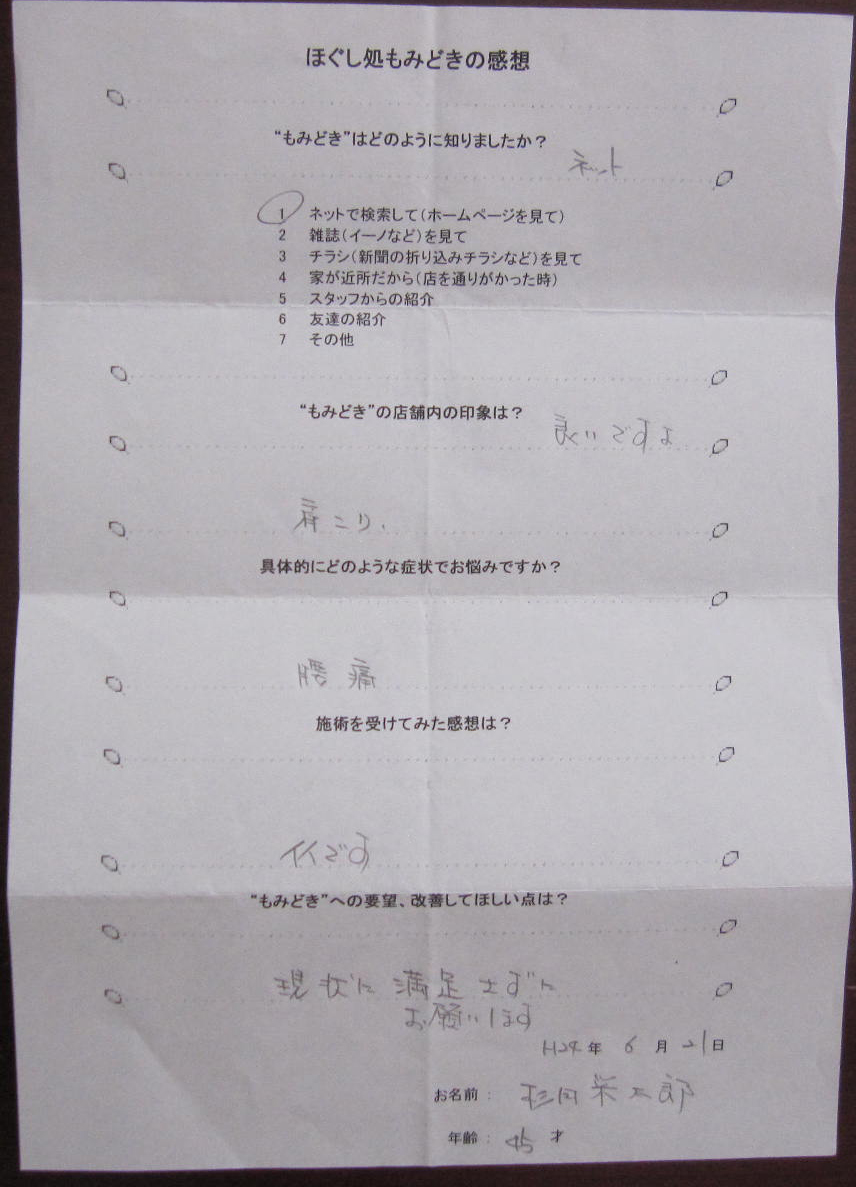 ほぐし処もみどきの感想
“もみどき”はどのように知りましたか？
ネット
1 ネットで検索して（ホームページを見て）
2 雑誌（イーノなど）を見て
3 チラシ（新聞の折り込みチラシなど）を見て
4 家が近所だから（店を通りがかった時）
5 スタッフからの紹介
6 友達の紹介
7 その他
“もみどき”の店舗内の印象は？
良いですよ
肩こり、
具体的にどのような症状でお悩みですか？
腰痛
施術を受けてみた感想は？
イイです
“もみどき”への要望、改善してほしい点は？
現状に満足せずに
お願いします
H24年 6月 21日
お名前： 栄太郎
年齢： 45 才